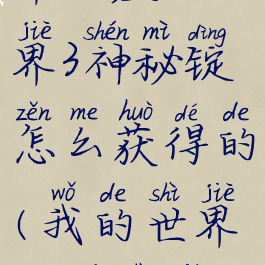 jiè shén mì dìng
界3神秘锭
zěn me huò dé de
怎么获得的
wǒ de shì jiè
(我的世界